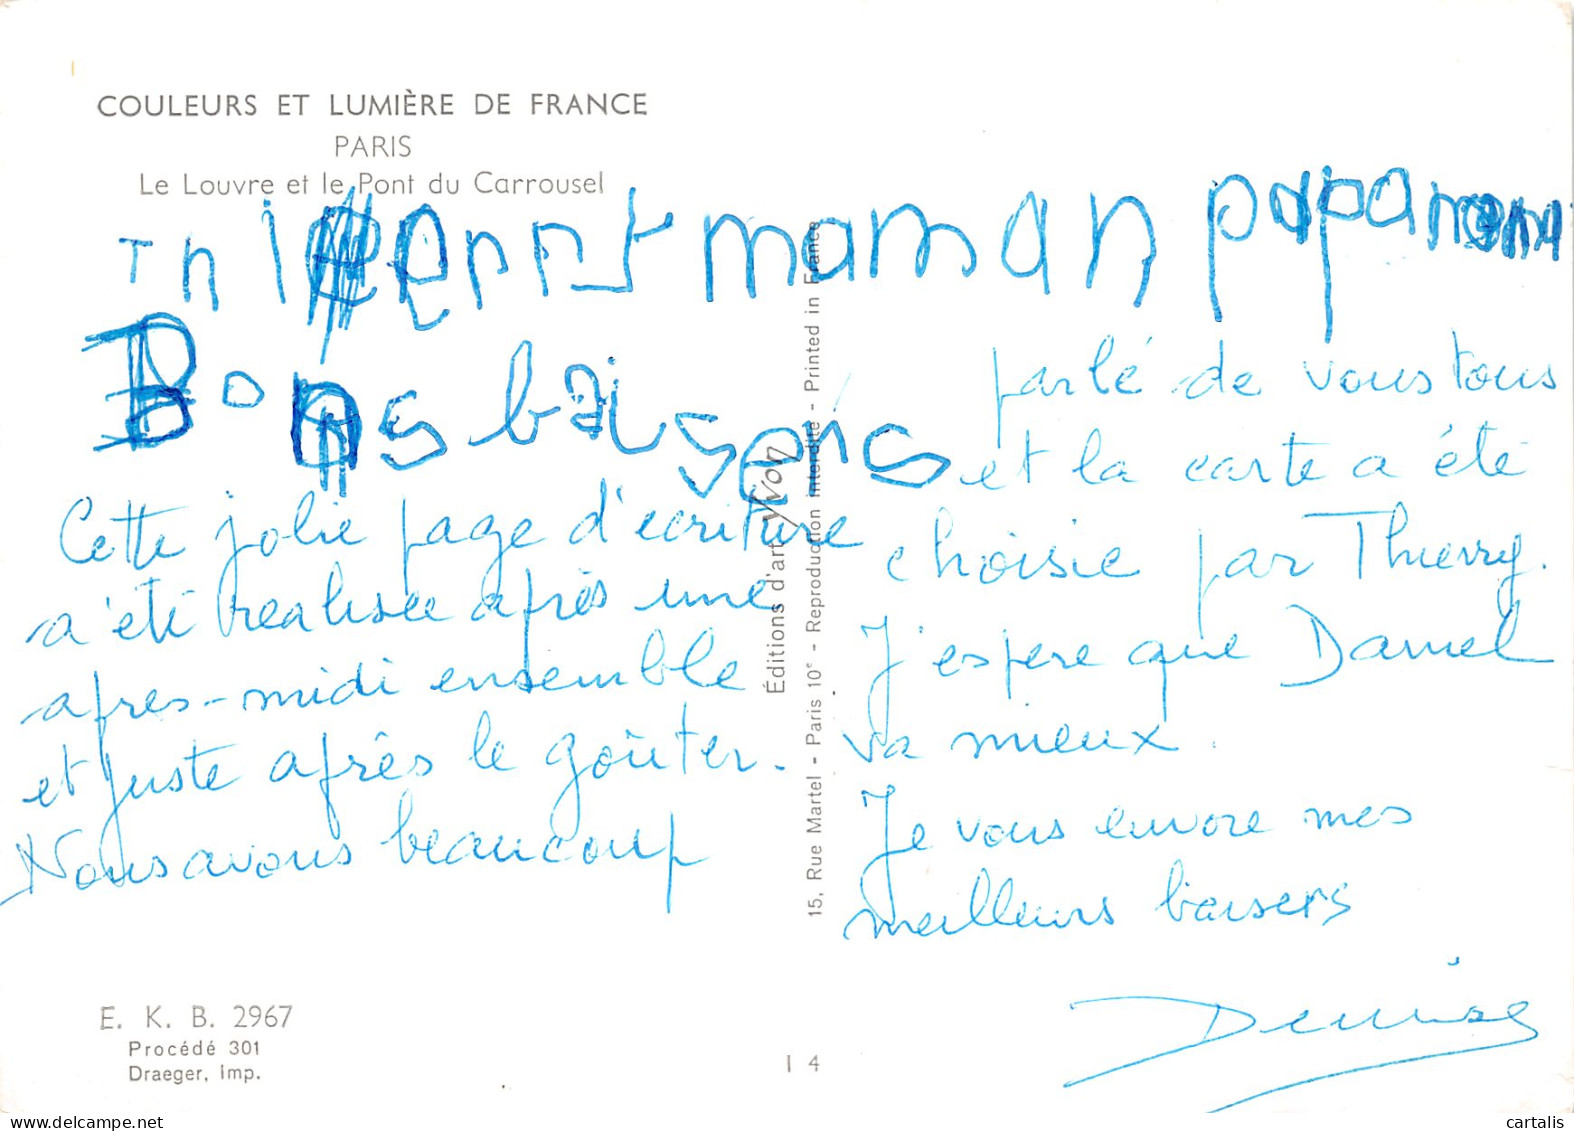 COULEURS ET LUMIÈRE DE FRANCE
PARIS
Le Louvre et le Pont du Carrousel
maman papa
Bons baisers
Cette jolie page d'ecriture
a été realisée après une
apres-midi ensemble
et juste après le goûter.
Nous avons beaucoup
parlé de vous tous
et la carte a été
choisie par Thierry.
J'espere que Daniel
va mieux.
Je vous envoie mes
meilleurs baisers
Denise
Éditions d'art Yvon
15, Rue Martel - Paris 10e - Reproduction interdite - Printed in France
E. K. B. 2967
Procédé 301
Draeger, Imp.
I 4
delcampe.net
cartalis